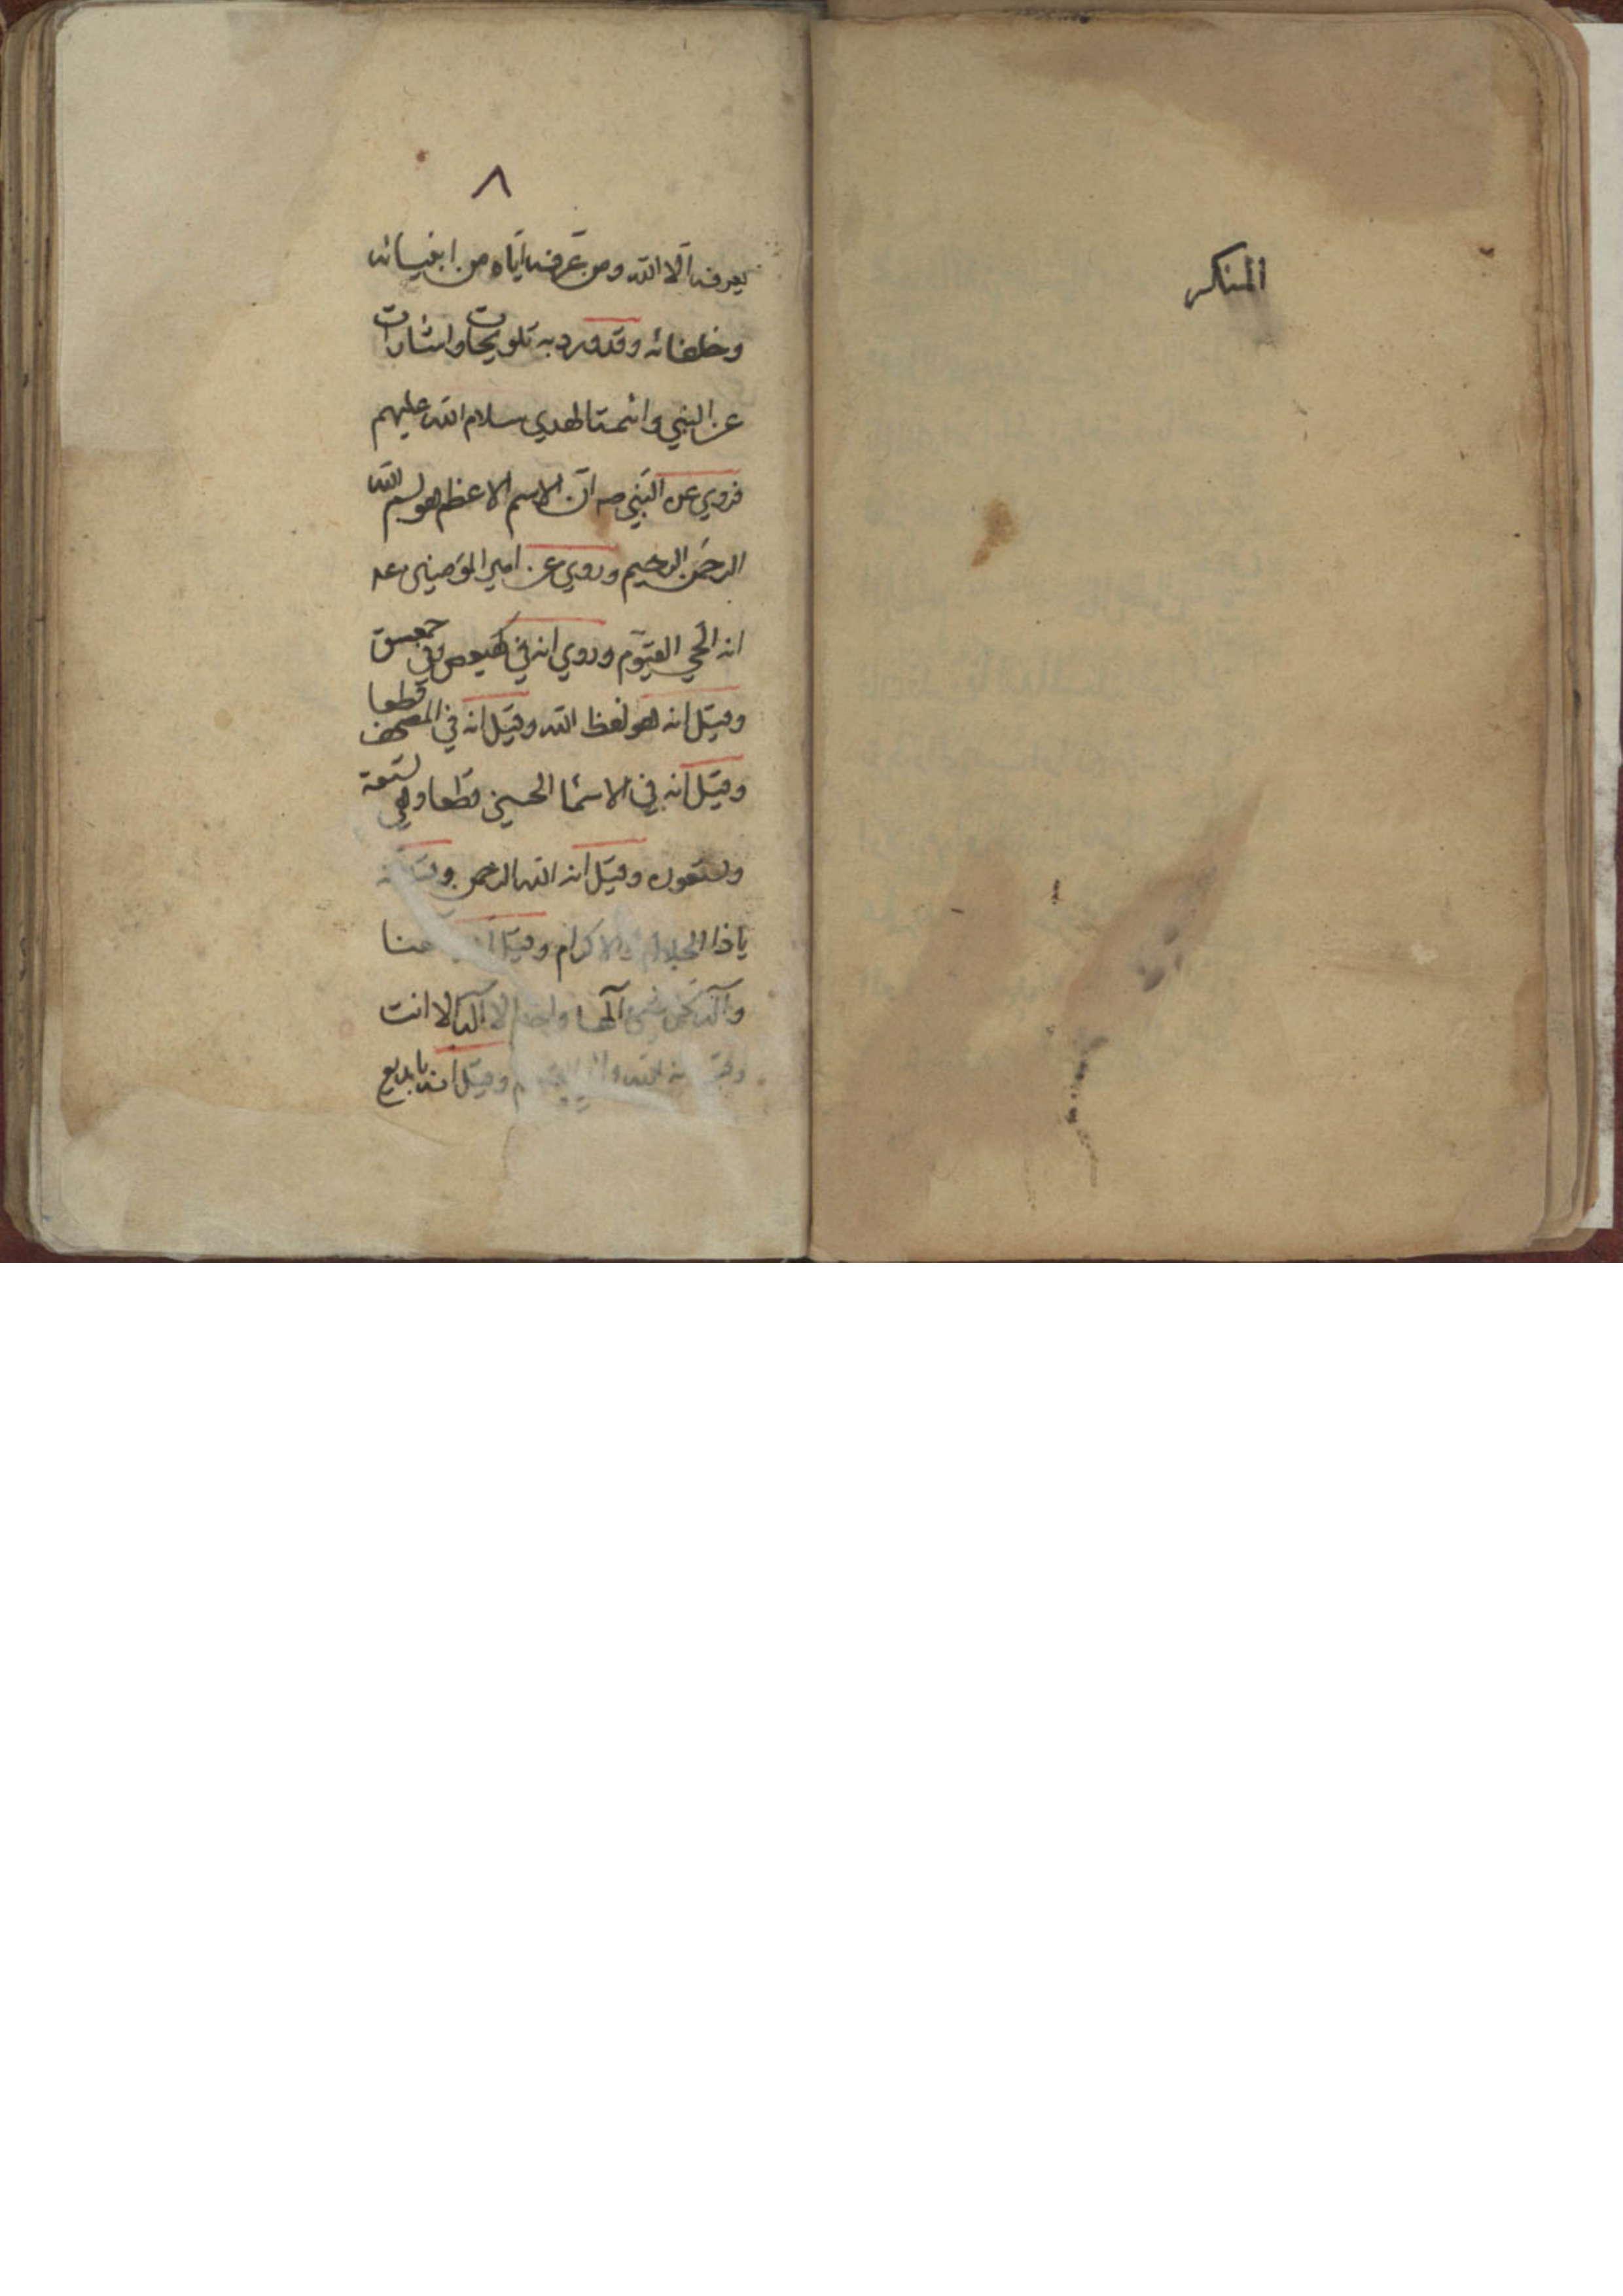 المنكر
٨
يعرفه الا الله ومن عرفه اياه من انبيائه
وخلفائه وقد ورد به تلويحات واشارات
عن النبي وائمة الهدي سلام الله عليهم
فروي عن النبي صه ان الاسم الاعظم هو بسم الله
الرحمن الرحيم وروي عن امير المؤمنين عه
انه الحي القيوم وروي انه في كهيعص وفي حمعسق
وقيل انه هو لفظ الله وقيل انه في المصحف قطعا
وقيل انه في الاسما الحسنى قطعا وهي تسعة
وتسعون وقيل انه الله الرحمن وقيل انه
يا ذا الجلال والاكرام وقيل
واله كل شئ الها واحدا لا اله الا انت
وقيل انه الله وقيل انه يا بديع